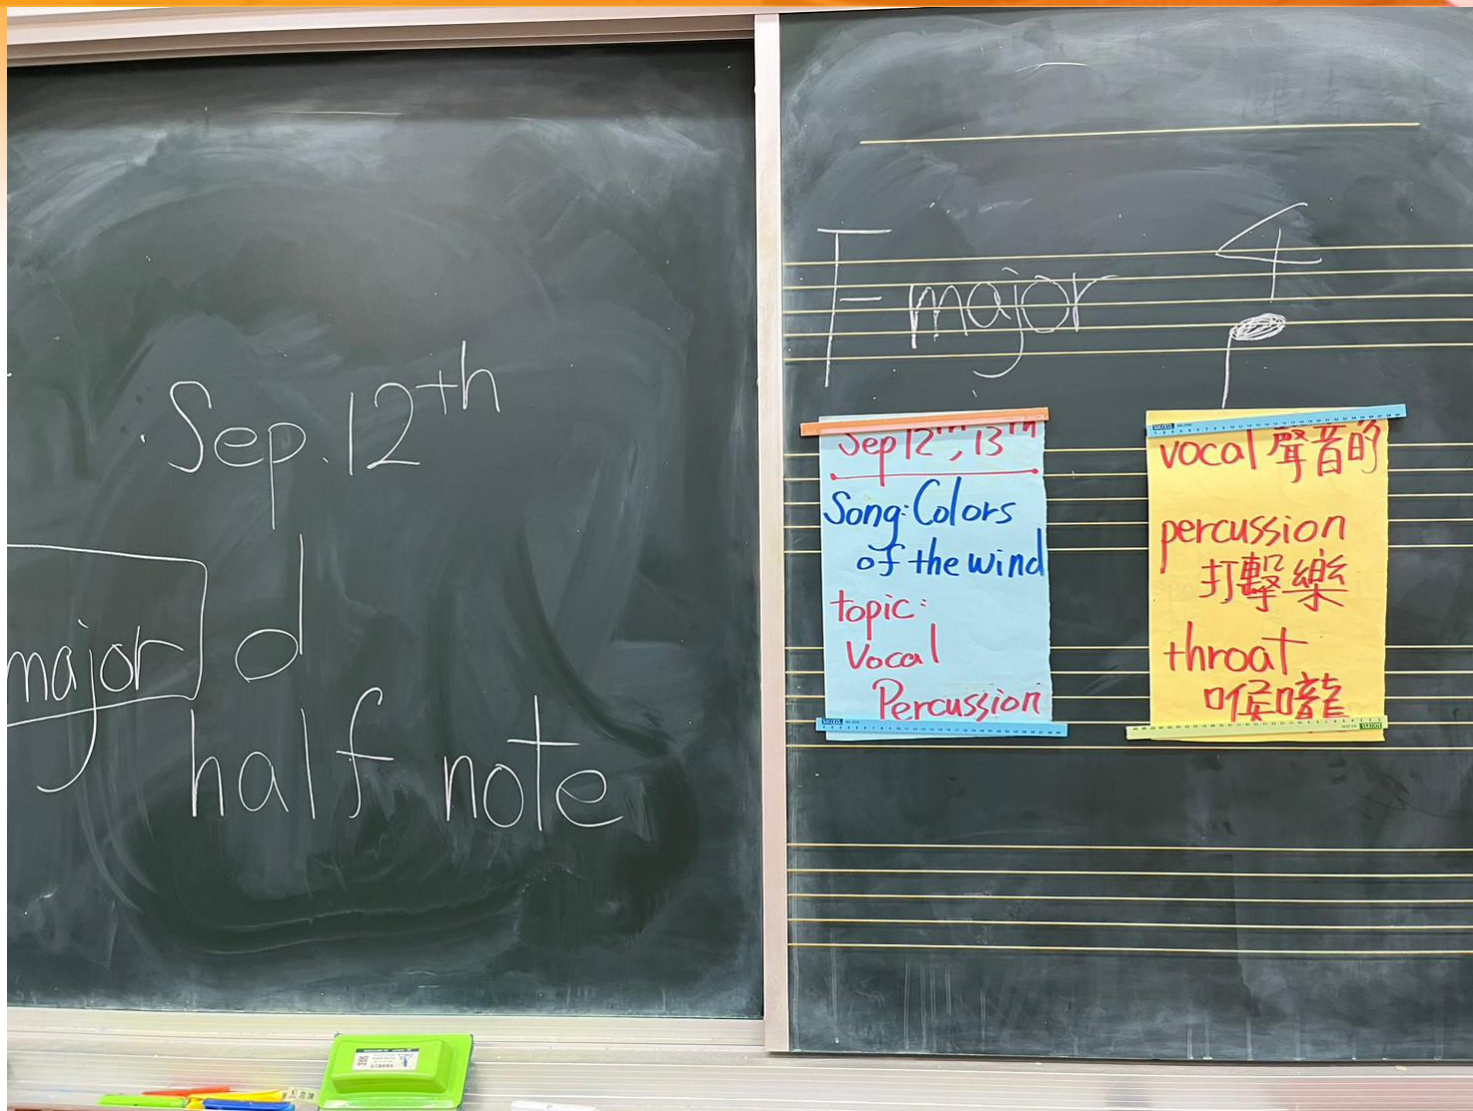 Sep. 12th
major
half note
F major
4
Sep 12th, 13th
Song: Colors
of the wind
topic:
Vocal
Percussion
vocal 聲音的
percussion
打擊樂
throat
喉嚨